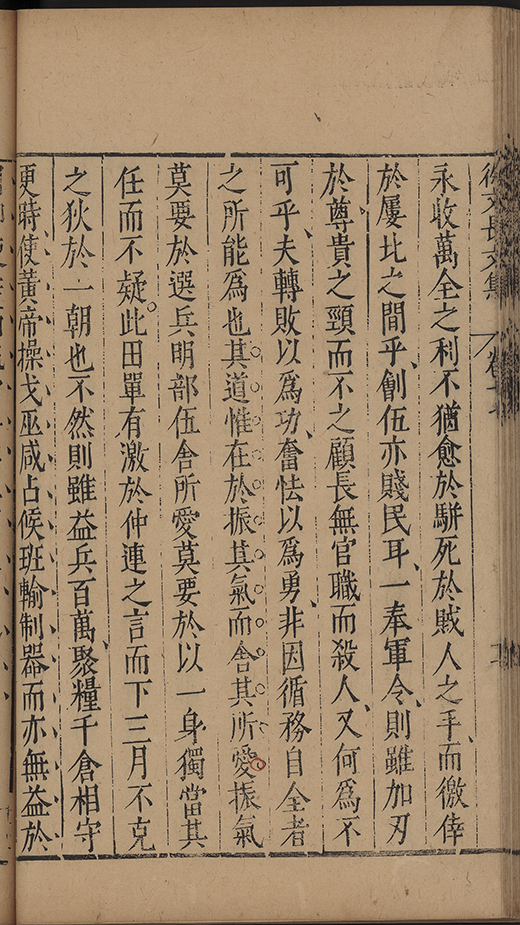 徐文長文集 卷十七
永收萬全之利不猶愈於駢死於賊人之手而徼倖
於屢比之間乎創伍亦賤民耳一奉軍令則雖加刃
於尊貴之頸而不之顧長無官職而殺人又何爲不
可乎夫轉敗以爲功奮怯以爲勇非因循務自全者
之所能爲也其道惟在於振其氣而舍其所愛振氣
莫要於選兵明部伍舍所愛莫要於以一身獨當其
任而不疑此田單有激於仲連之言而下三月不克
之狄於一朝也不然則雖益兵百萬聚糧千倉相守
更時使黃帝操戈巫咸占候班輸制器而亦無益於